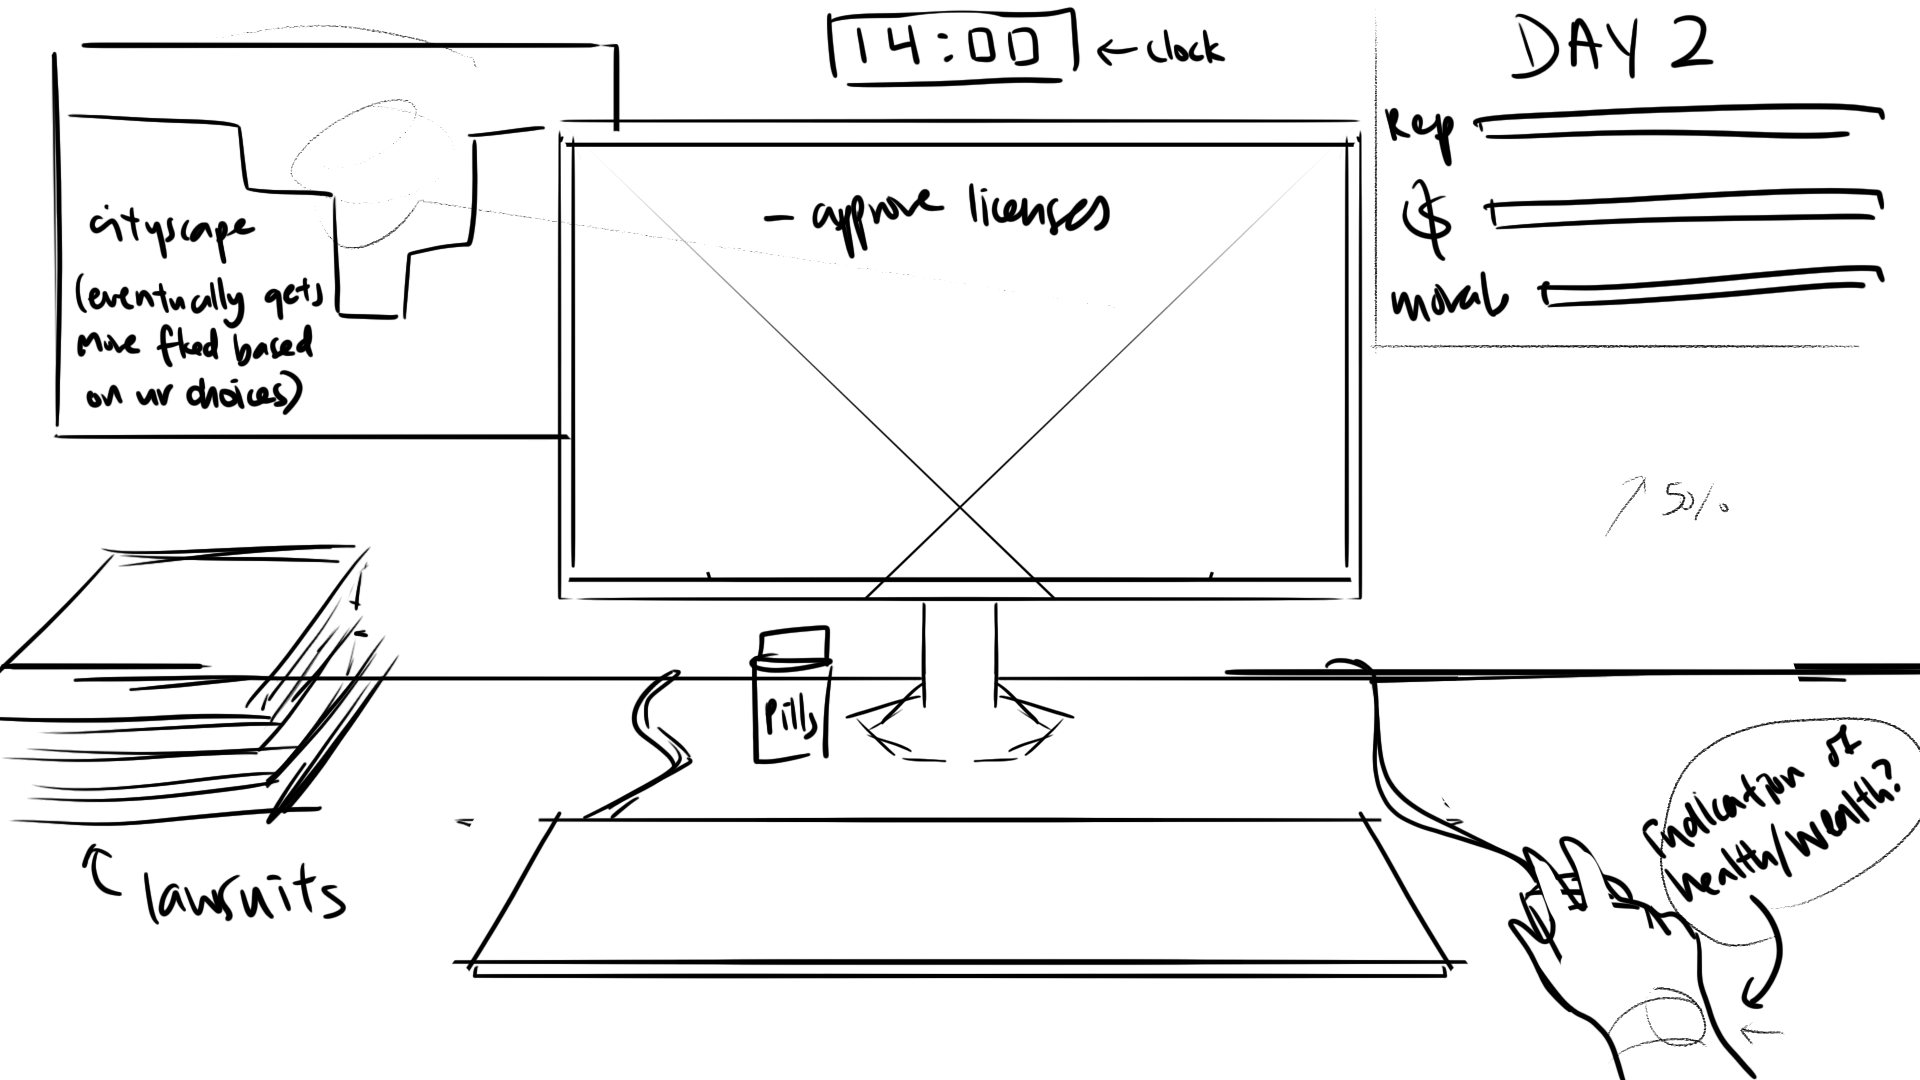 14:00
← clock
DAY 2
Rep
$
morals
cityscape
(eventually gets
more fked based
on ur choices)
- approve licenses
↑ 50%
Pills
lawsuits
indication of
health/wealth?